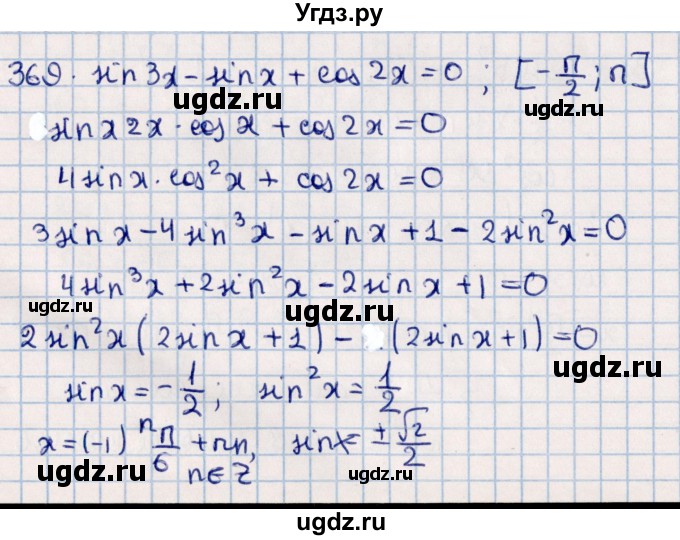 Угдз.ру
369. sin 3x - sin x + cos 2x = 0 ; [-π/2 ; π]
ugdz.ru ugdz.ru
sin x 2x · cos x + cos 2x = 0
4 sin x · cos²x + cos 2x = 0
ugdz.ru
3 sin x - 4 sin³x - sin x + 1 - 2 sin²x = 0
ugdz.ru
4 sin³x + 2 sin²x - 2 sin x + 1 = 0
ugdz.ru
2 sin²x (2 sin x + 1) - (2 sin x + 1) = 0
ugdz.ru
sin x = -1/2 ; sin²x = 1/2
x = (-1)ⁿ π/6 + πn, sin x = ± √2/2
n ∈ Z
ugdz.ru ugdz.ru
ugdz.ru